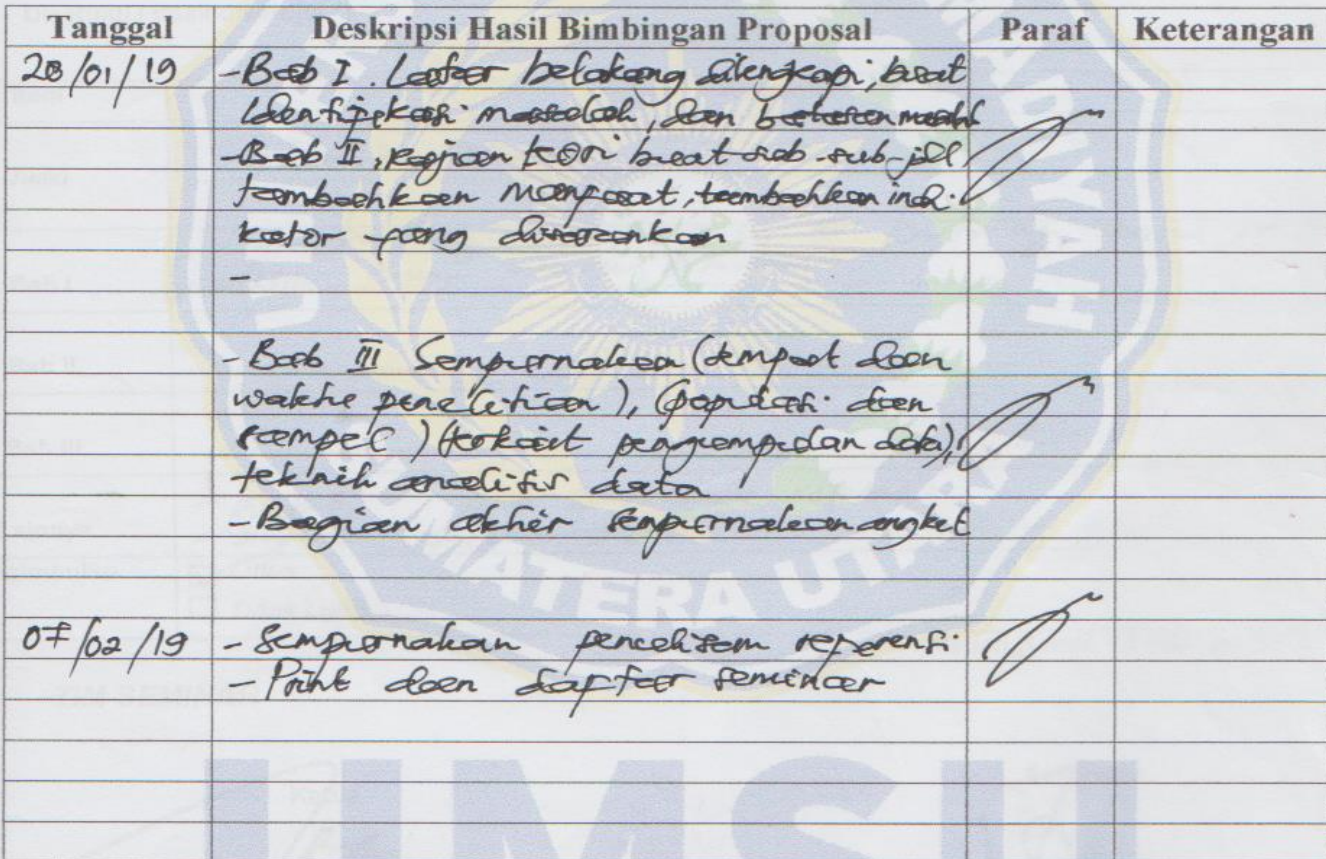 Tanggal Deskripsi Hasil Bimbingan Proposal Paraf Keterangan
28/01/19 - Bab I. Latar belakang dilengkapi, buat
Identifikasi masalah, dan batasan masalah
- Bab II, kajian teori buat sub-sub jdl
tambahkan manfaat, tambahkan indi
kator yang disarankan
-
- Bab III Sempurnakan (tempat dan
waktu penelitian), (populasi dan
sampel) (terkait pengumpulan data),
teknik analisis data
- Bagian akhir sempurnakan angket
07/02/19 - Sempurnakan penulisan referensi
- Print dan daftar seminar
UNIVERSITAS MUHAMMADIYAH
SUMATERA UTARA
UMSU